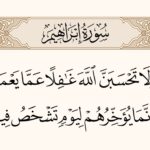 سُورَةُ إِبْرَاهِيمَ
لَا تَحْسَبَنَّ اللَّهَ غَافِلًا عَمَّا يَعْمَ
نَّمَا يُؤَخِّرُهُمْ لِيَوْمٍ تَشْخَصُ فِي